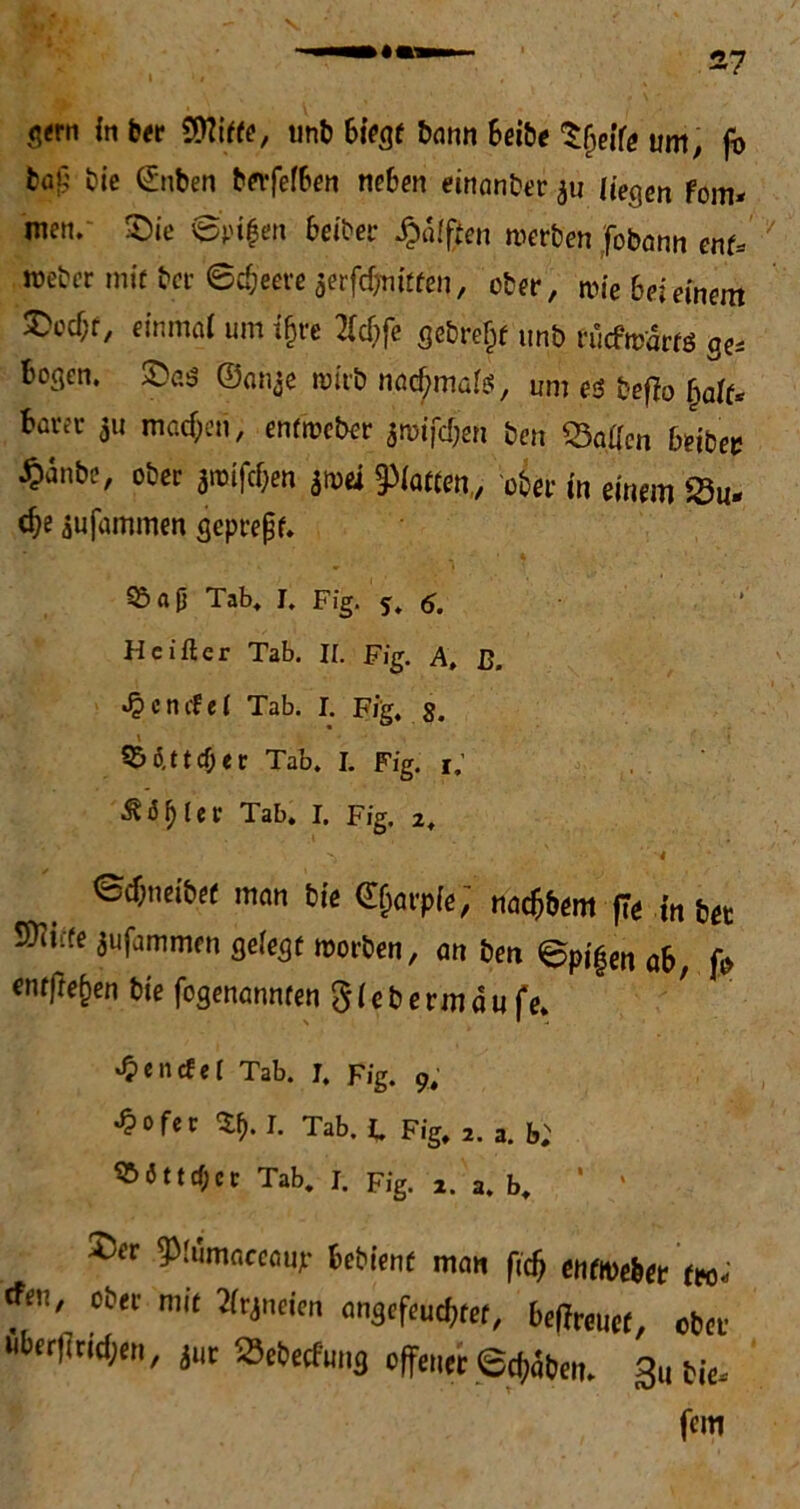 27
gern in der Mitte, und biegt dann beide Theile um, so
daß die Enden derselben neben einander zu liegen kom-
men. Die Spitzen beider Hälften werden sodann ent-
weder mit der Scheere zerschnitten, oder, wie bei einem
Docht, einmal um ihre Achse gedreht und rückwärts ge-
bogen. Das Ganze wird nachmals, um es desto halt-
barer zu machen, entweder zwischen den Ballen beider
Hände, oder zwischen zwei Platten, oder in einem Bu-
che zusammen gepreßt.
Baß Tab. I. Fig. 5. 6.
Heister Tab. II. Fig. A. B.
Henckel Tab. I. Fig. 8.
Böttcher Tab. I. Fig. 1.
Köhler Tab. I. Fig. 2.
Schneidet man die Charpie, nachdem sie in der
Mitte zusammen gelegt worden, an den Spitzen ab, so
entstehen die sogenannten Fledermäuse.
Henckel Tab. I. Fig. 9.
Hofer Th. I. Tab. I. Fig. 2. a. b.
Böttcher Tab. I. Fig. 2. a. b.
Der Plümaceaux bedient man sich entweder tro-
cken, oder mit Arzneien angefeuchtet, bestreuet, oder
überstrichen, zur Bedeckung offener Schäden. Zu die-
sem